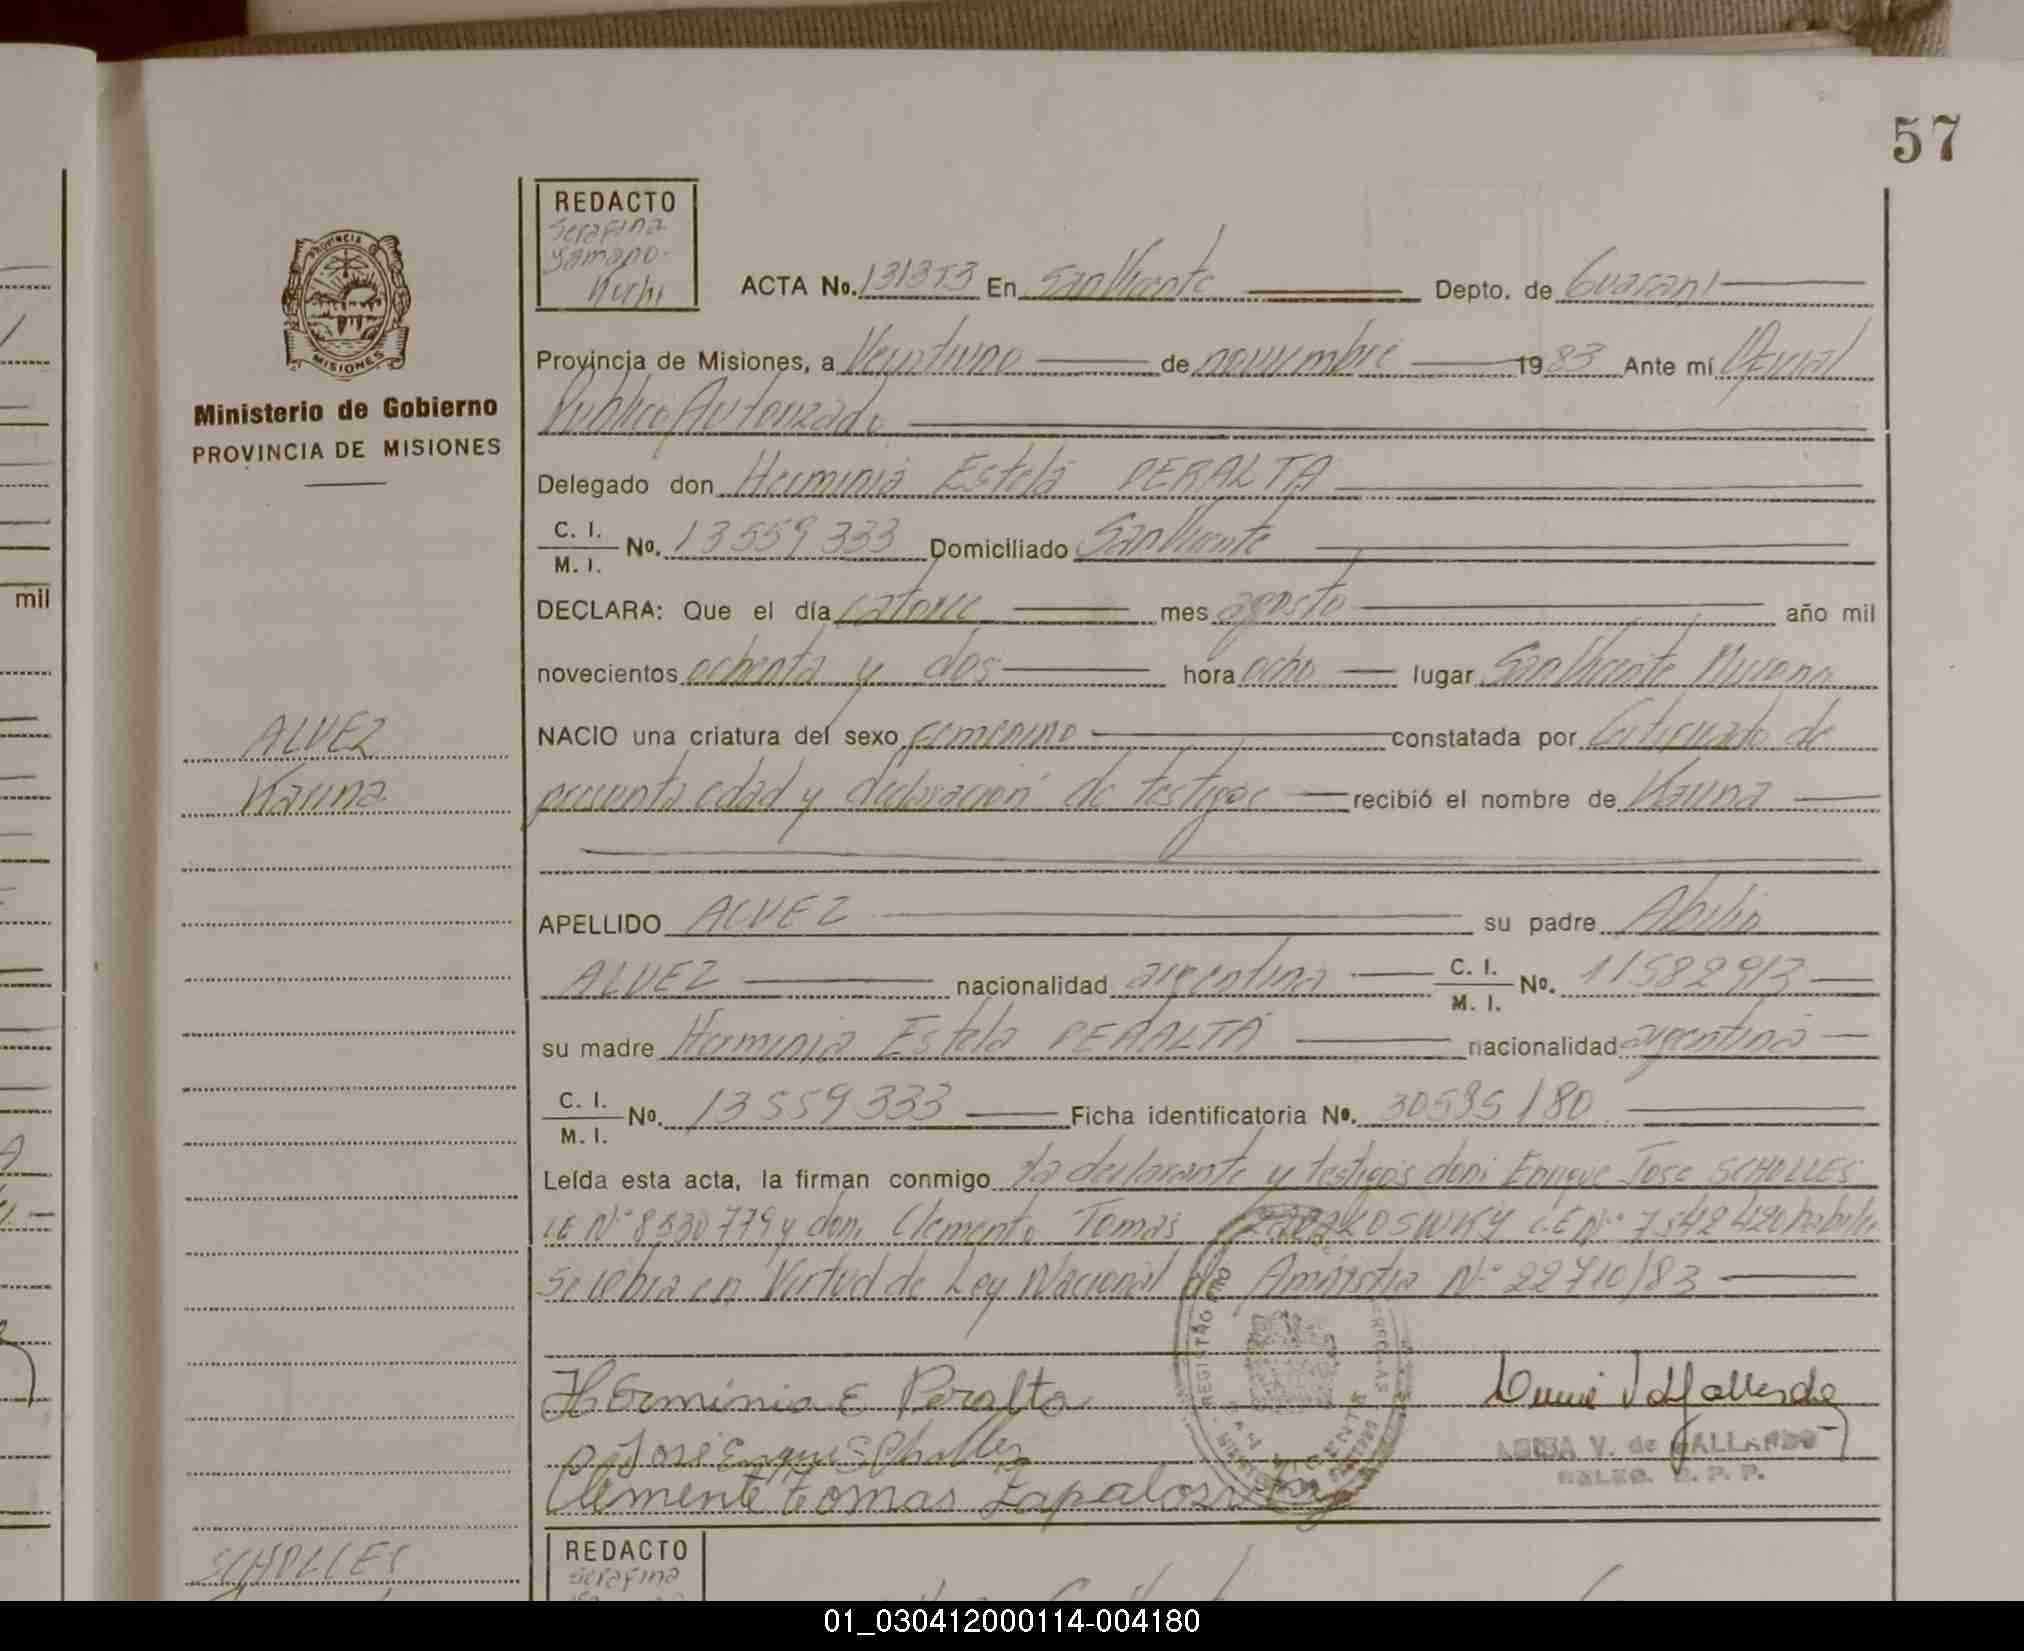 57
REDACTO
Serafina
Yamapo-
ACTA No. 131353 En San Vicente Depto. de Guarani
Provincia de Misiones, a Veintiuno de noviembre 1983 Ante mi Oficial
Publico Autorizado
PROVINCIA DE
MISIONES
Ministerio de Gobierno
PROVINCIA DE MISIONES
Delegado don Herminia Estela PERALTA
C. I.
M. I. No. 13559333 Domiciliado San Vicente
DECLARA: Que el día catorce mes agosto año mil
novecientos ochenta y dos hora ocho lugar San Vicente Misiones
ALVEZ
Karina
NACIO una criatura del sexo femenino constatada por Certificado de
presunta edad y declaración de testigos recibió el nombre de Karina
APELLIDO ALVEZ su padre Abilio
ALVEZ nacionalidad argentina C. I. M. I. No. 11582913
su madre Herminia Estela PERALTA nacionalidad argentina
C. I.
M. I. No. 13559333 Ficha identificatoria No. 30595/80
Leída esta acta, la firman conmigo la declarante y testigos don: Enrique Jose SCHOLLES
LE Nº 8530779 y don, Clemente Tomas L.E Nº 7542420 habiles
Se labra en Virtud de Ley Nacional de Amnistia Nº 22710/83
Herminia E Peralta
Jose Enrique Scholles
Clemente Tomas
V. de GALLARDO
mil
SCHOLLES
REDACTO
Serafina
01_030412000114-004180